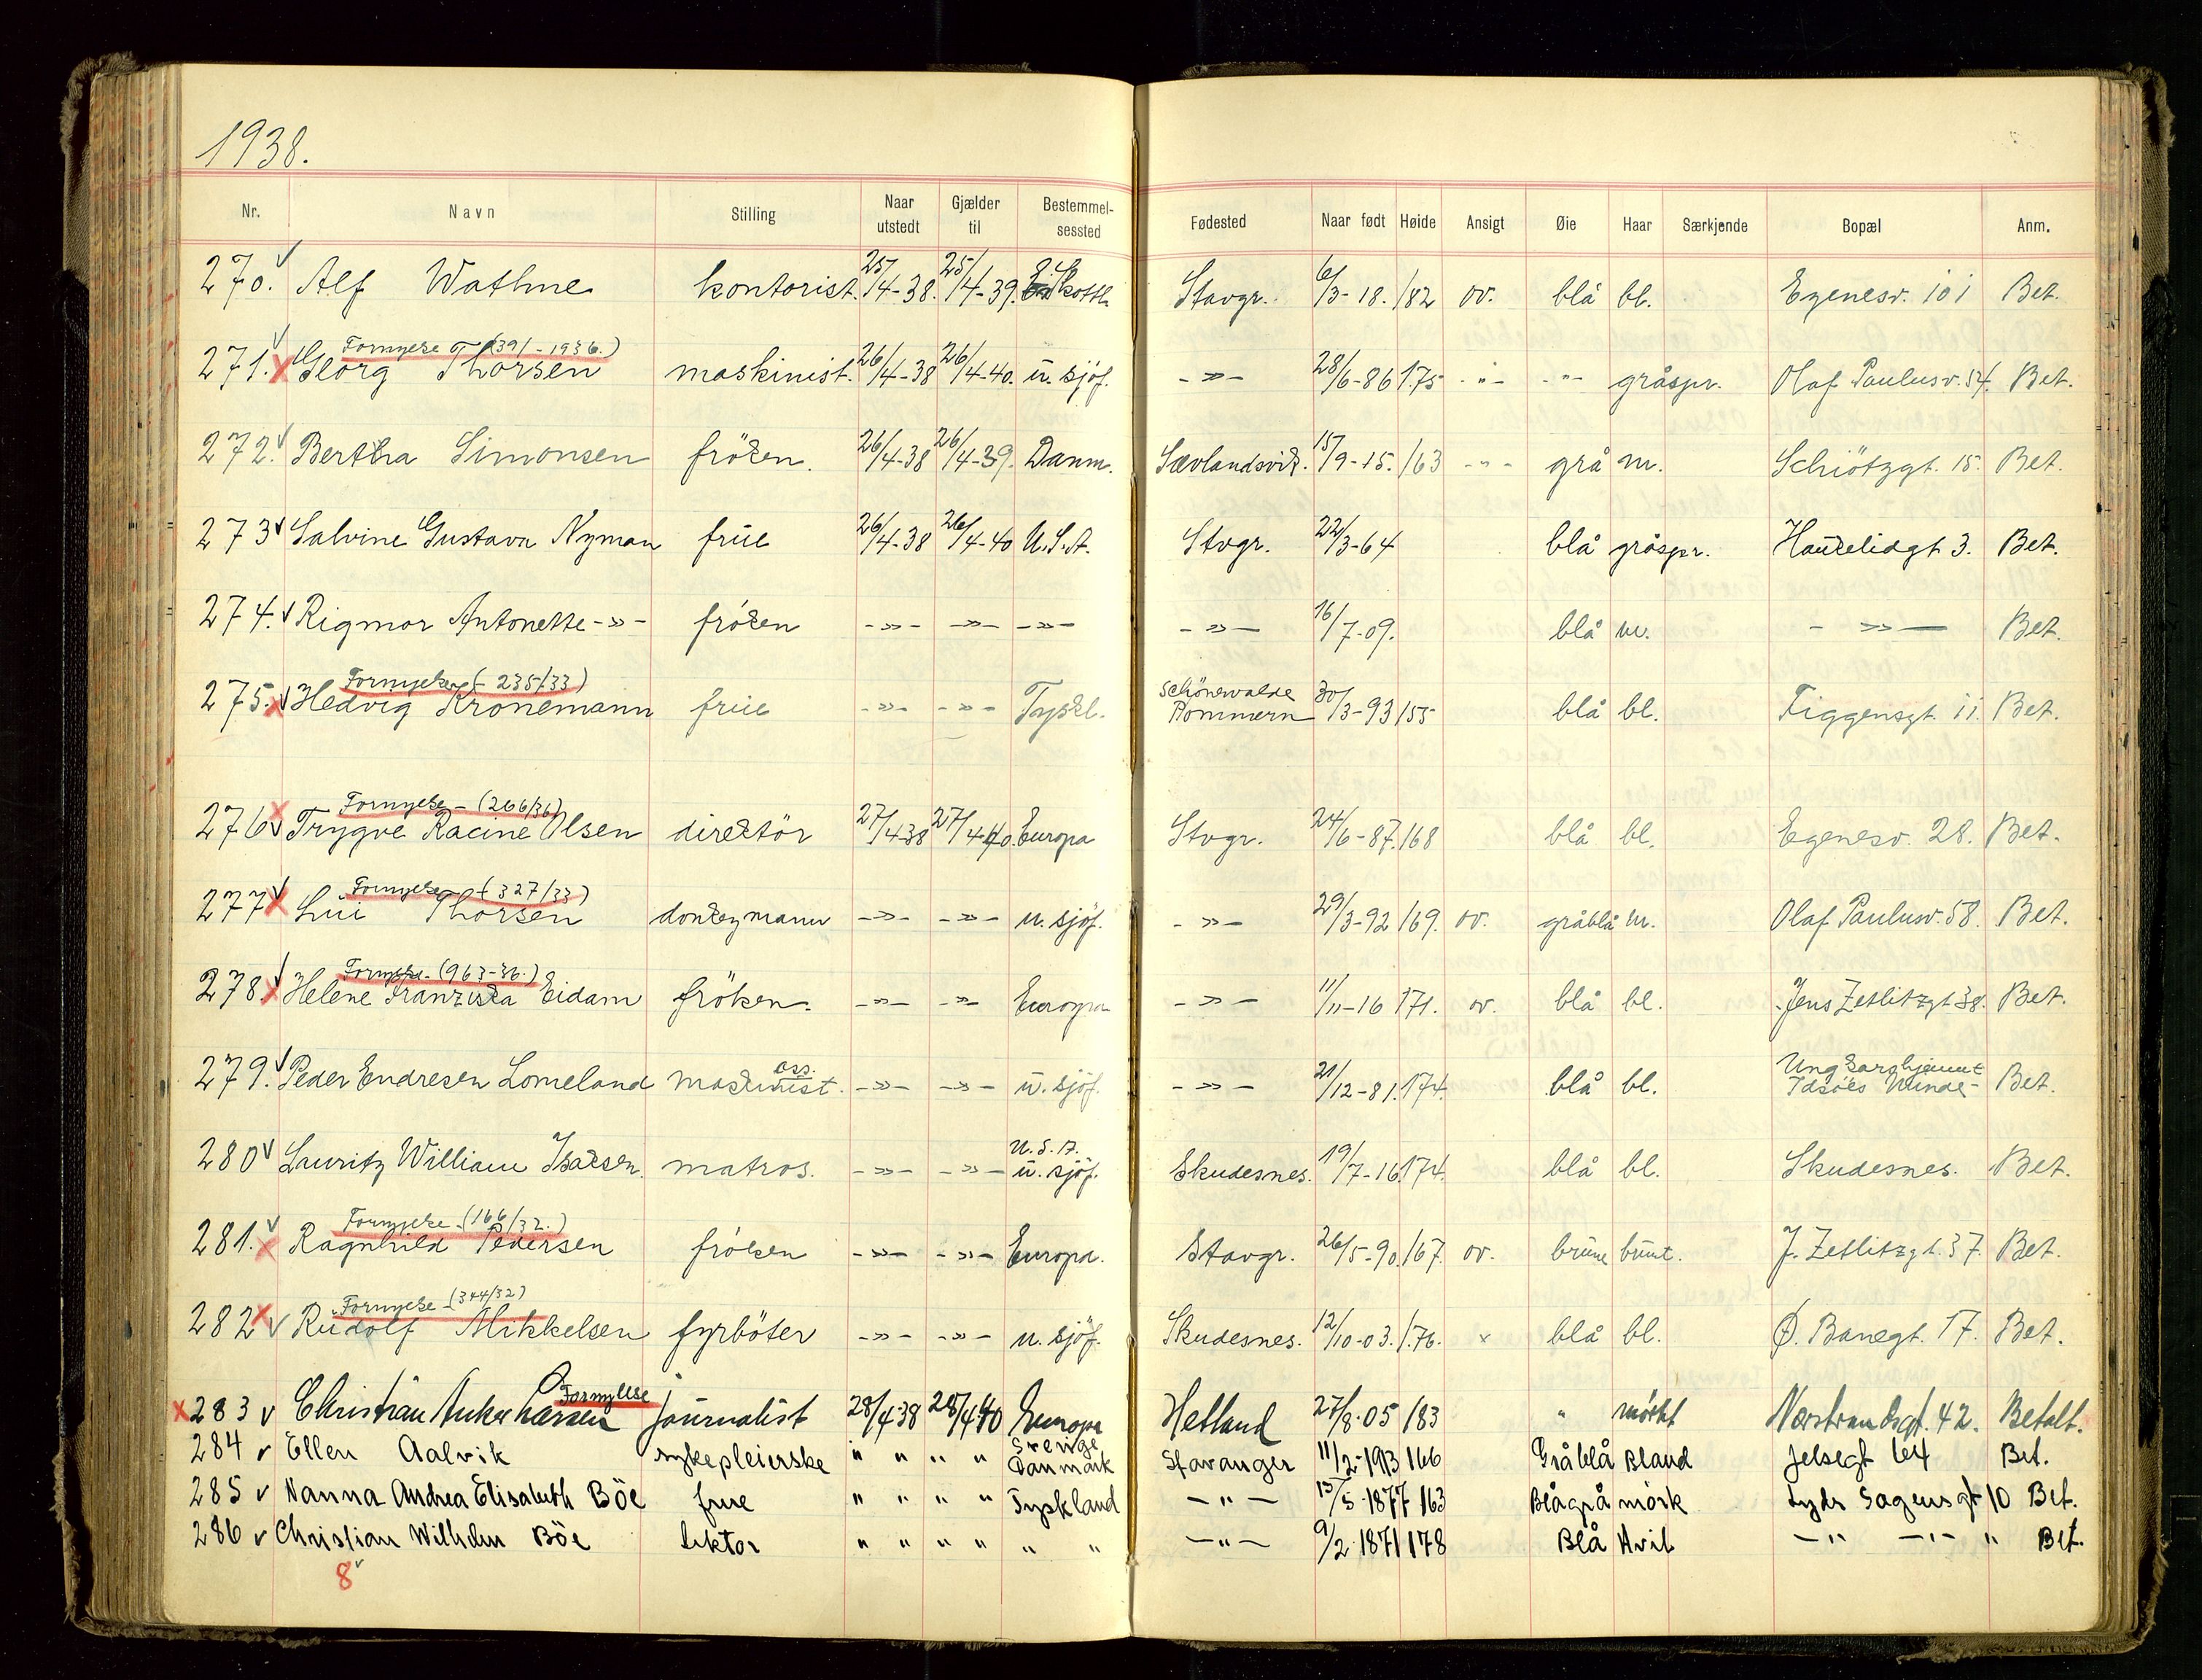 1938.
Nr. Navn Stilling Naar utstedt Gjælder til Bestemmelsessted Fødested Naar født Høide Ansigt Øie Haar Særkjende Bopæl Anm.
270. Alf Wathne kontorist. 25/4-38. 25/4-39. Skottl. Stavgr. 6/3-18. 182 ov. blå bl. Egenesv. 101 Bet.
Fornyelse (391-1936.)
271. Georg Thorsen maskinist. 26/4-38 26/4-40. u. sjöf. -»- 28/6-86 175 -"- -"- gråspr. Olaf Paulusv. 54. Bet.
272. Bertha Simonsen fröken. 26/4-38 26/4-39. Danm. Sævlandsvik. 15/9-15. 163 -"- grå m. Schiötzgt. 15. Bet.
273 Salvine Gustava Nyman frue 26/4-38 26/4-40 U.S.A. Stvgr. 22/3-64 blå gråspr. Haukelidgt 3. Bet.
274. Rigmor Antonette -»- fröken -»- -»- -»- -»- 16/7-09. blå m. -»- Bet.
Fornyelse (235/33) Schönewalde
275. Hedvig Kronemann frue -»- -»- Tyskl. Pommern 30/3-93 155 blå bl. Figgensgt. 11. Bet.
Fornyelse - (266/36)
276 Trygve Racine Olsen direktör 27/4-38 27/4-40. Europa Stvgr. 24/6-87. 168 blå bl. Egenesv. 28. Bet.
Fornyelse - (327/33)
277 Lui Thorsen donkeymann -»- -»- u. sjöf. -»- 29/3-92 169. ov. gråblå m. Olaf Paulusv. 58. Bet.
Fornyelse - (963-36.)
278. Helene Franziska Eidam fröken. -»- -»- Europa -»- 11/11-16 171. ov. blå bl. Jens Zetlitzgt 38. Bet.
ass. Ungkarshjemmet
279. Peder Endresen Lomeland maskinist. -»- -»- u. sjöf. -»- 21/12-81. 174. blå bl. Idsöes Minde- Bet.
U.S.A.
280 Lauritz William Isaksen matros. -»- -»- u. sjöf. Skudesnes. 19/7-16 174. blå bl. Skudesnes. Bet.
Fornyelse - (166/32.)
281. Ragnhild Pedersen fröken -»- -»- Europa. Stavgr. 26/5-90. 167. ov. brune brunt. J. Zetlitzgt. 37. Bet.
Fornyelse - (344/32)
282 Rudolf Mikkelsen fyrböter -»- -»- u. sjöf. Skudesnes. 12/10-03. 176. × blå bl. Ø. Banegt. 17. Bet.
Fornyelse
283 Christian Anker Larsen journalist 28/4-38 28/4-40 Europa Hetland 27/8-05 183 " mörkt Nørstrandsgt. 42. Betalt.
Sverige
284 Ellen Aalvik sykepleierske " " " " Danmark Stavanger 11/2-1913 166 Gråblå Bland Jelsegt 64 Bet.
285 Nanna Andrea Elisabeth Böe frue " " " " Tyskland -"- 15/5-1877 163 Blågrå mörk Lyder Sagensgt 10 Bet.
286 Christian Wilhelm Böe lektor " " " " " " -"- 9/2-1871 178 Blå Hvit -" -"- " Bet.
8